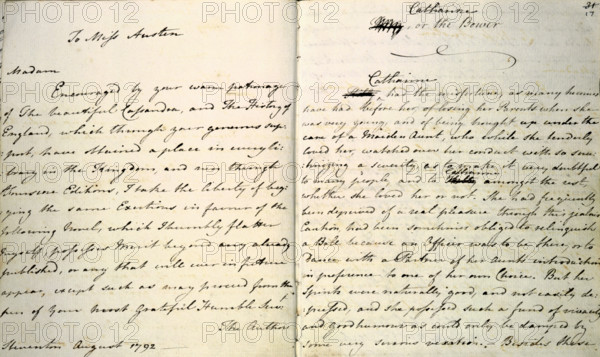 To Miss Austen
Madam
Encouraged by your warm patronage
of The beautiful Cassandra, and The History of
England, which through your generous sup-
port, have obtained a place in every li-
brary in the Kingdom, and run through
threescore Editions, I take the liberty of beg-
ging the same Exertions in favour of the
following Novel, which I humbly flatter
myself, possesses Merit beyond any already
published, or any that will ever in future
appear, except such as may proceed from the
pen of Your Most Grateful Humble Servt.
The Author
Steventon August 1792
Catharine
or the Bower
Catharine
had the misfortune, as many heroines
have had before her, of losing her Parents when she
was very young, and of being brought up under the
care of a Maiden Aunt, who while she tenderly
loved her, watched over her conduct with so scru-
tinizing a severity, as to make it very doubtful
to many people, and to Catharine amongst the rest,
whether she loved her or not. She had frequently
been deprived of a real pleasure through this jealous
Caution, had been sometimes obliged to relinquish
a Ball because an Officer was to be there, or to
Dance with a Partner of her Aunt's introduction
in preference to one of her own Choice. But her
Spirits were naturally good, and not easily de-
pressed, and she possessed such a fund of vivacity
and good humour as could only be damped by
some very serious vexation. Besides these
PHOTO12